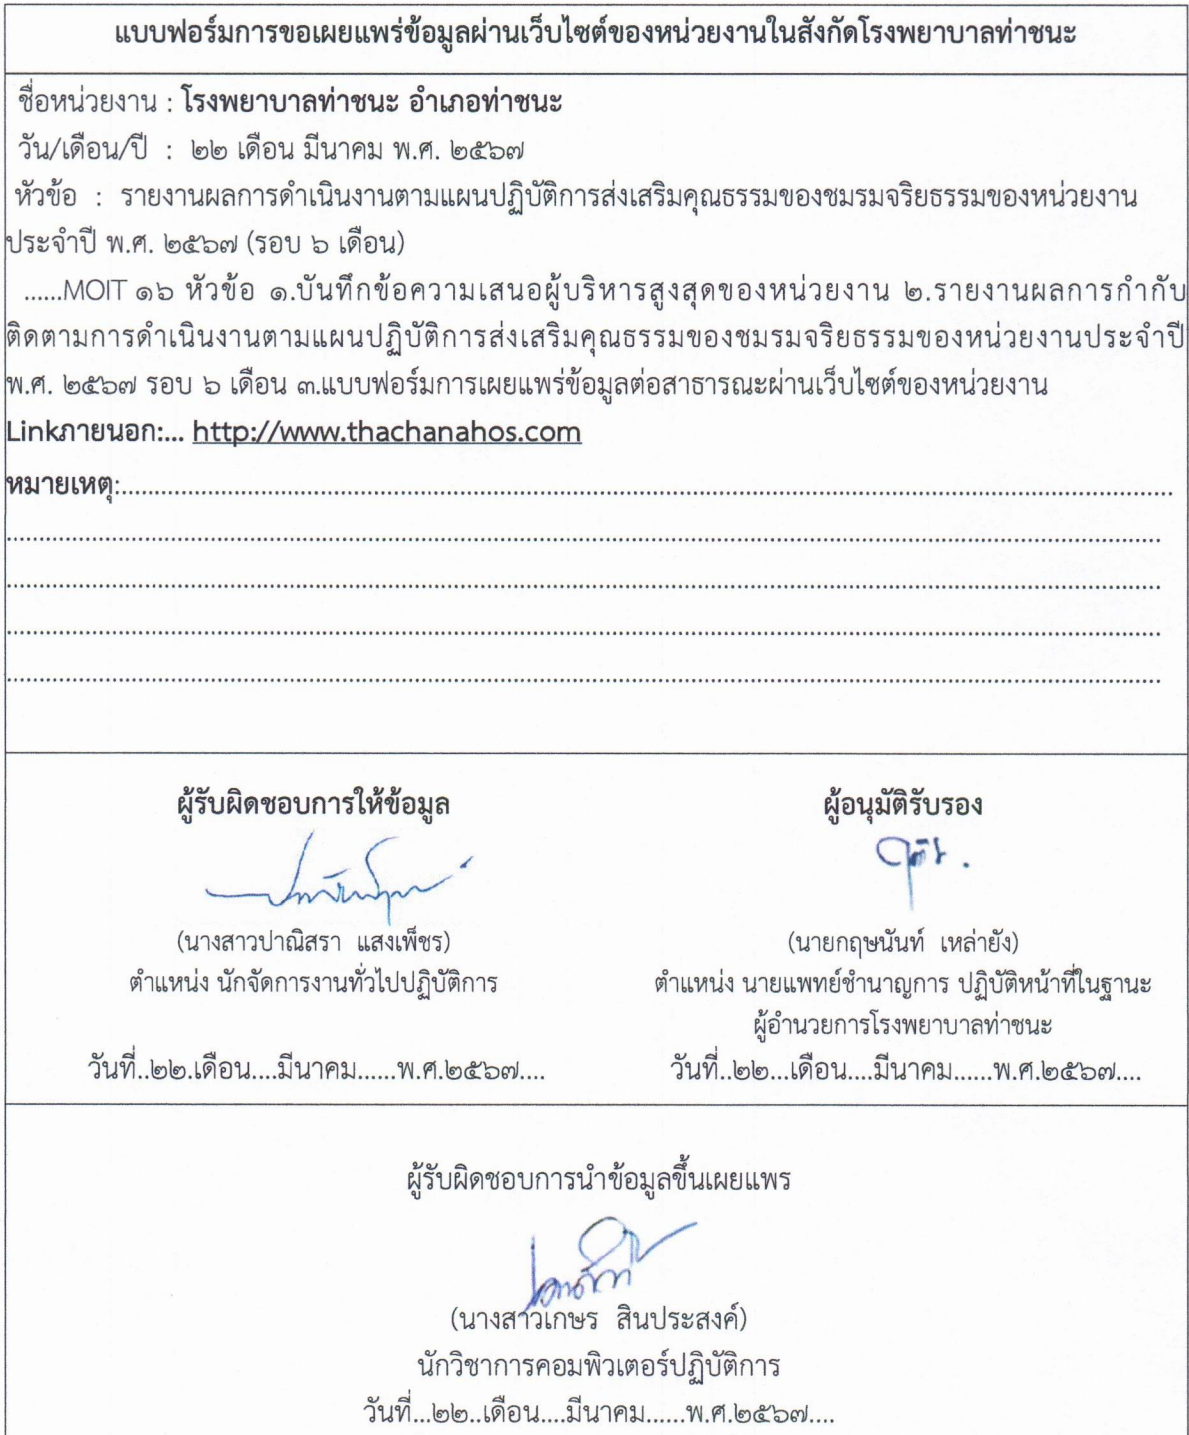 แบบฟอร์มการขอเผยแพร่ข้อมูลผ่านเว็บไซต์ของหน่วยงานในสังกัดโรงพยาบาลท่าชนะ
ชื่อหน่วยงาน : โรงพยาบาลท่าชนะ อำเภอท่าชนะ
วัน/เดือน/ปี : ๒๒ เดือน มีนาคม พ.ศ. ๒๕๖๗
หัวข้อ : รายงานผลการดำเนินงานตามแผนปฏิบัติการส่งเสริมคุณธรรมของชมรมจริยธรรมของหน่วยงาน
ประจำปี พ.ศ. ๒๕๖๗ (รอบ ๖ เดือน)
......MOIT ๑๖ หัวข้อ ๑.บันทึกข้อความเสนอผู้บริหารสูงสุดของหน่วยงาน ๒.รายงานผลการกำกับ
ติดตามการดำเนินงานตามแผนปฏิบัติการส่งเสริมคุณธรรมของชมรมจริยธรรมของหน่วยงานประจำปี
พ.ศ. ๒๕๖๗ รอบ ๖ เดือน ๓.แบบฟอร์มการเผยแพร่ข้อมูลต่อสาธารณะผ่านเว็บไซต์ของหน่วยงาน
Linkภายนอก:... http://www.thachanahos.com
หมายเหตุ:..........
ผู้รับผิดชอบการให้ข้อมูล
(นางสาวปาณิสรา แสงเพ็ชร)
ตำแหน่ง นักจัดการงานทั่วไปปฏิบัติการ
วันที่..๒๒.เดือน....มีนาคม......พ.ศ.๒๕๖๗....
ผู้อนุมัติรับรอง
(นายกฤษนันท์ เหล่ายัง)
ตำแหน่ง นายแพทย์ชำนาญการ ปฏิบัติหน้าที่ในฐานะ
ผู้อำนวยการโรงพยาบาลท่าชนะ
วันที่..๒๒...เดือน....มีนาคม......พ.ศ.๒๕๖๗....
ผู้รับผิดชอบการนำข้อมูลขึ้นเผยแพร
(นางสาวเกษร สินประสงค์)
นักวิชาการคอมพิวเตอร์ปฏิบัติการ
วันที่...๒๒..เดือน....มีนาคม......พ.ศ.๒๕๖๗....